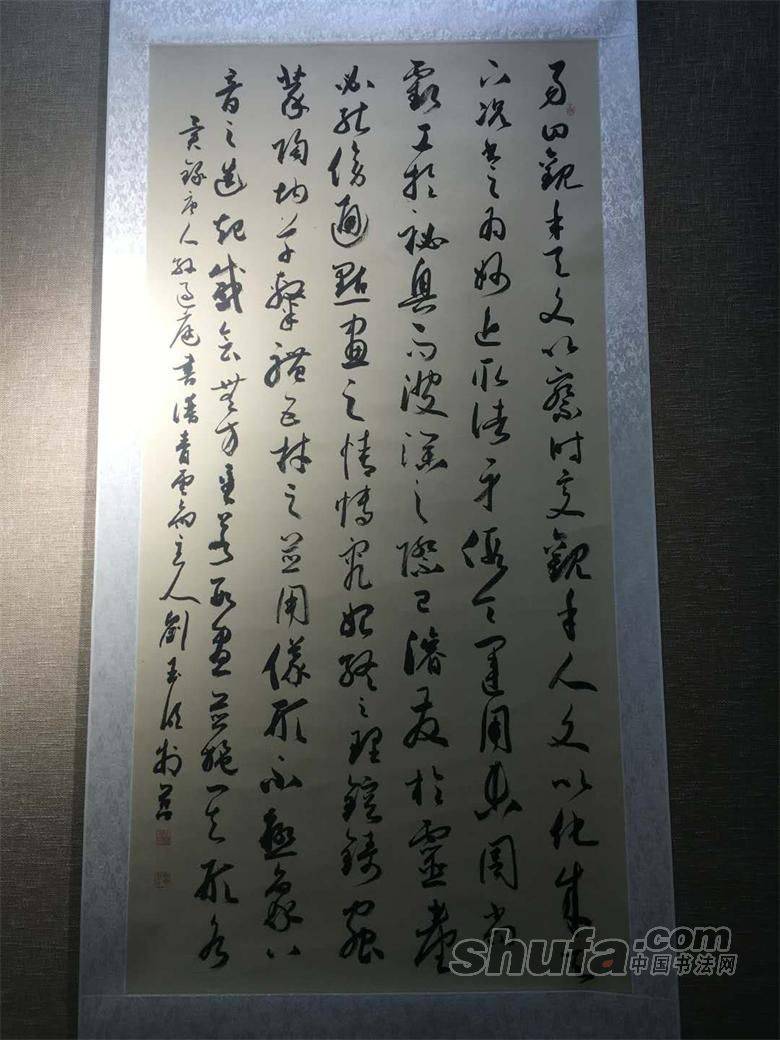 易曰觀乎天文以察時變觀乎人文以化成天
下況書之為妙近取諸身假令運用未周尚
虧工於祕奧而波瀾之際已濬發於靈臺
必能傍通點畫之情博究始終之理鎔鑄蟲
篆陶均草隸體五材之並用儀形不極象八
音之迭起感會無方至若數畫並施其形各
錄唐人孫過庭書譜青雲齋主人劉玉
shufa.com
中国书法网